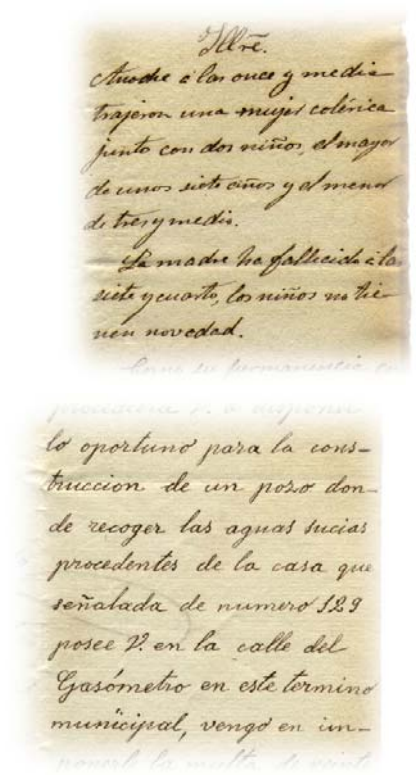 Illrē.
Anoche á las once y media
trajeron una mujer colérica
junto con dos niños, el mayor
de unos siete años y el menor
de tres y medio.
La madre ha fallecido á las
siete y cuarto, los niños no tie-
nen novedad.
Como su permanencia
lo oportuno para la cons-
truccion de un pozo don-
de recoger las aguas sucias
procedentes de la casa que
señalada de numero 129
posee V. en la calle del
Gasómetro en este termino
municipal, vengo en im-
ponerle la multa de veinte